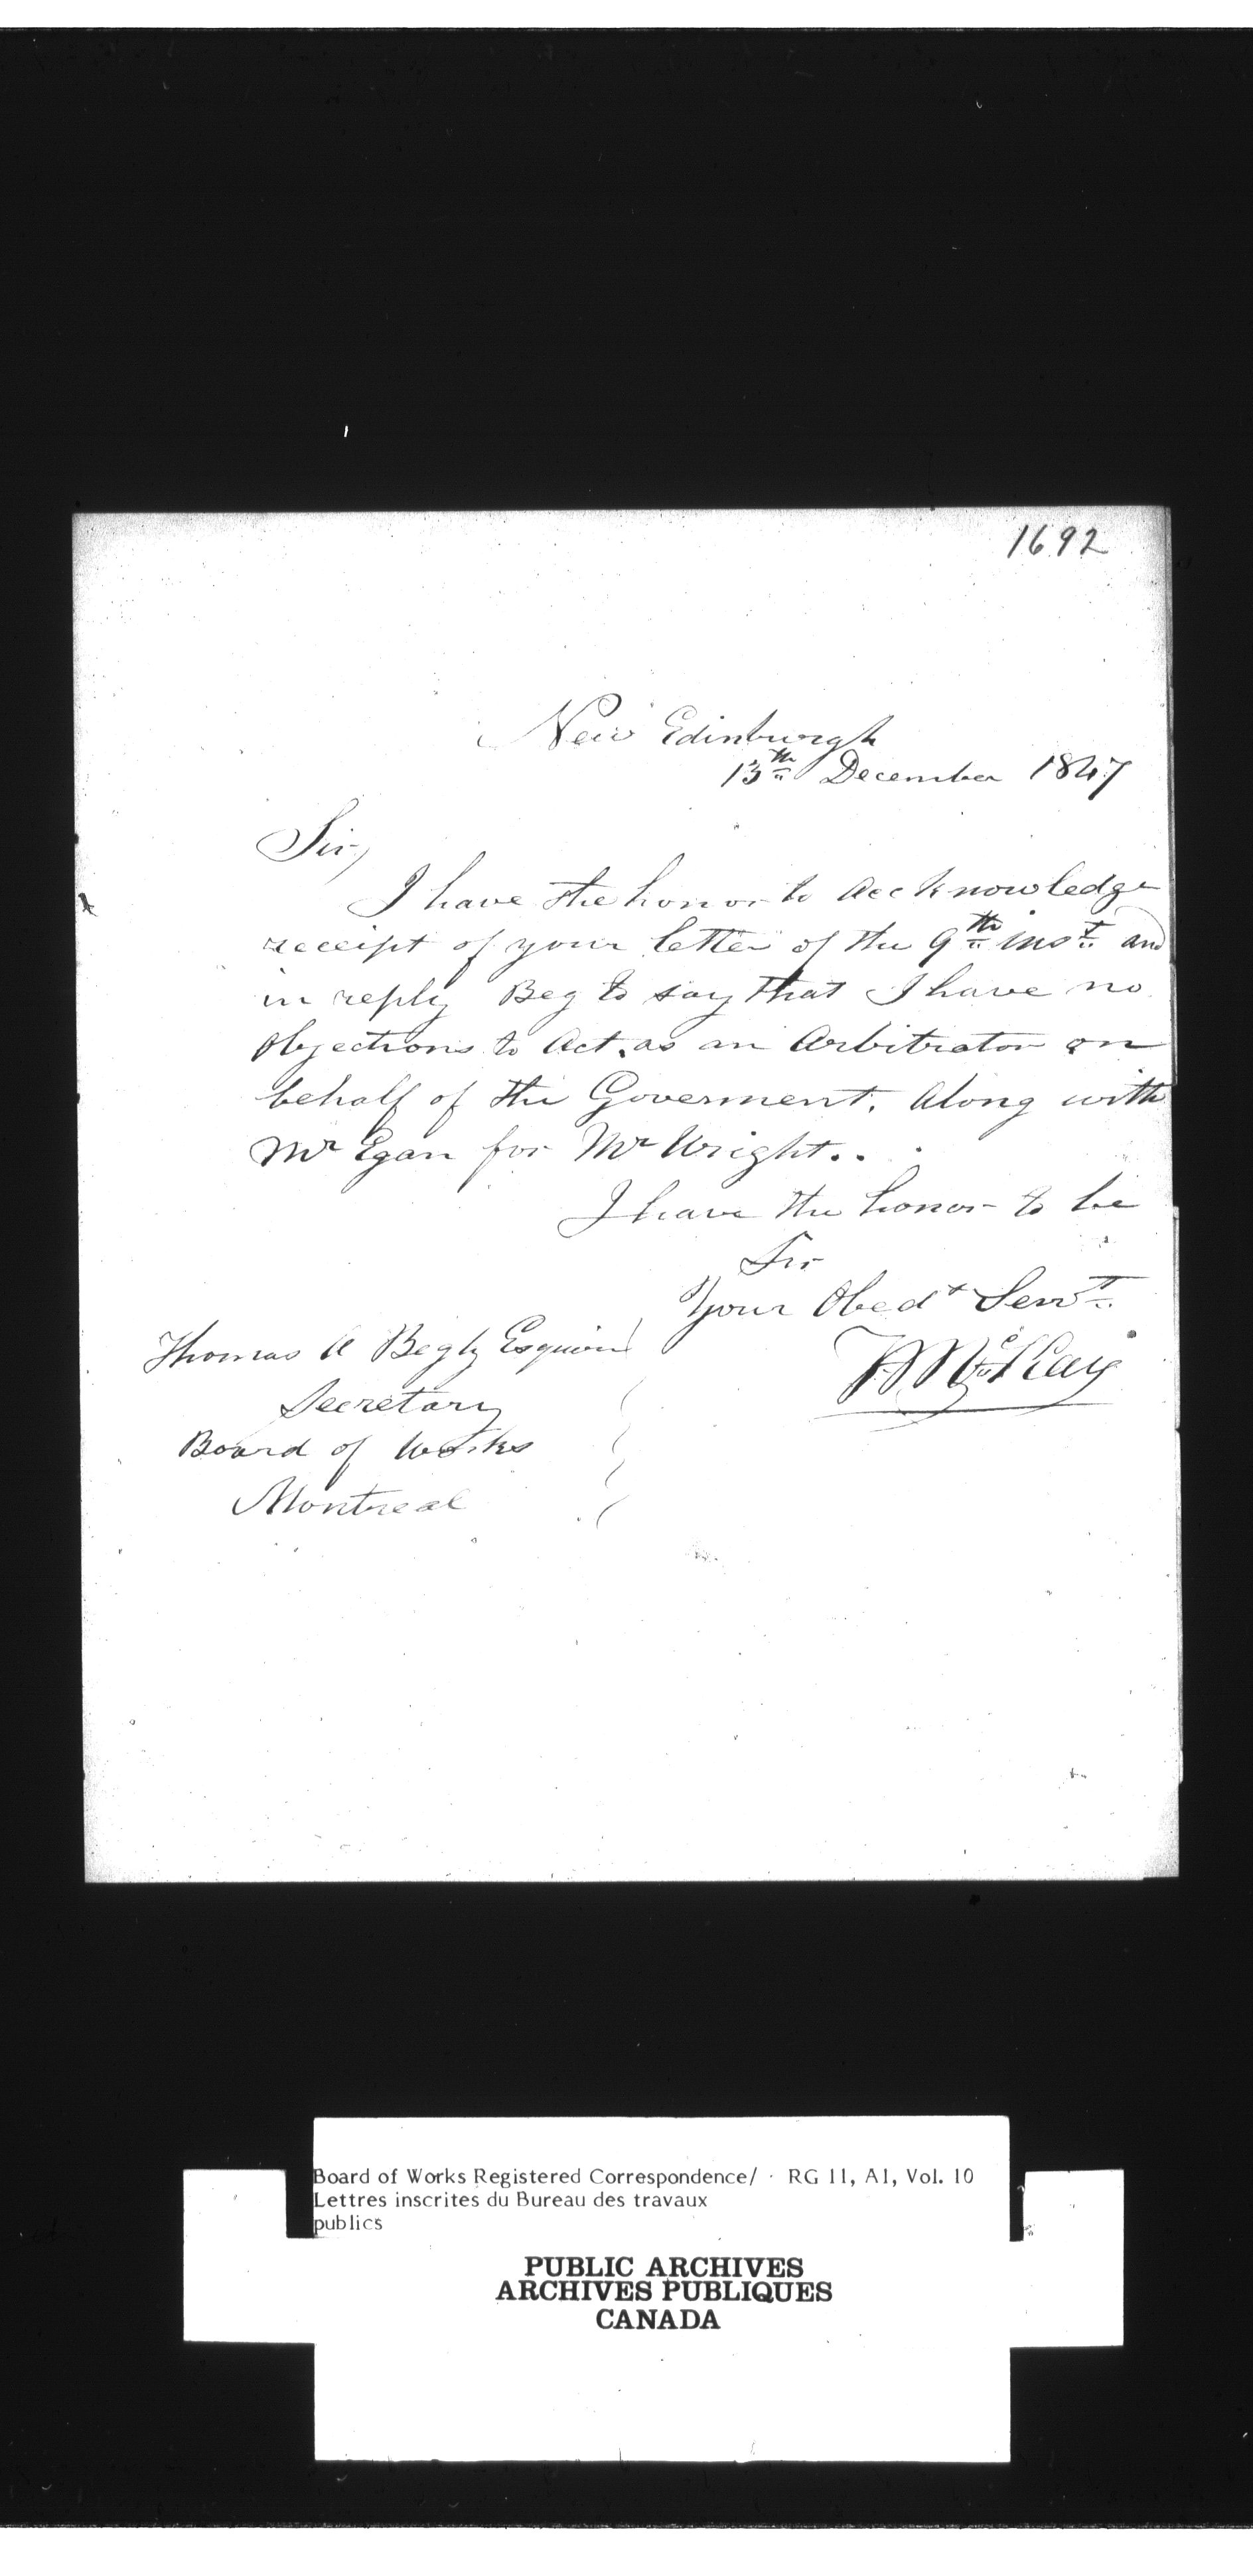 1692
New Edinburgh
13th December 1847
Sir,
I have the honor to Accknowledge
receipt of your letter of the 9th inst and
in reply Beg to say that I have no
Objections to Act. as an Arbitrator on
behalf of the Goverment. Along with
Mr Egan for Mr Wright..
I have the honor to be
Sir
Your Obedt Servt
Thomas A Begly Esquire
T McKay
Secretary
Board of Works
Montreal
Board of Works Registered Correspondence/ RG 11, A1, Vol. 10
Lettres inscrites du Bureau des travaux
publics
PUBLIC ARCHIVES
ARCHIVES PUBLIQUES
CANADA